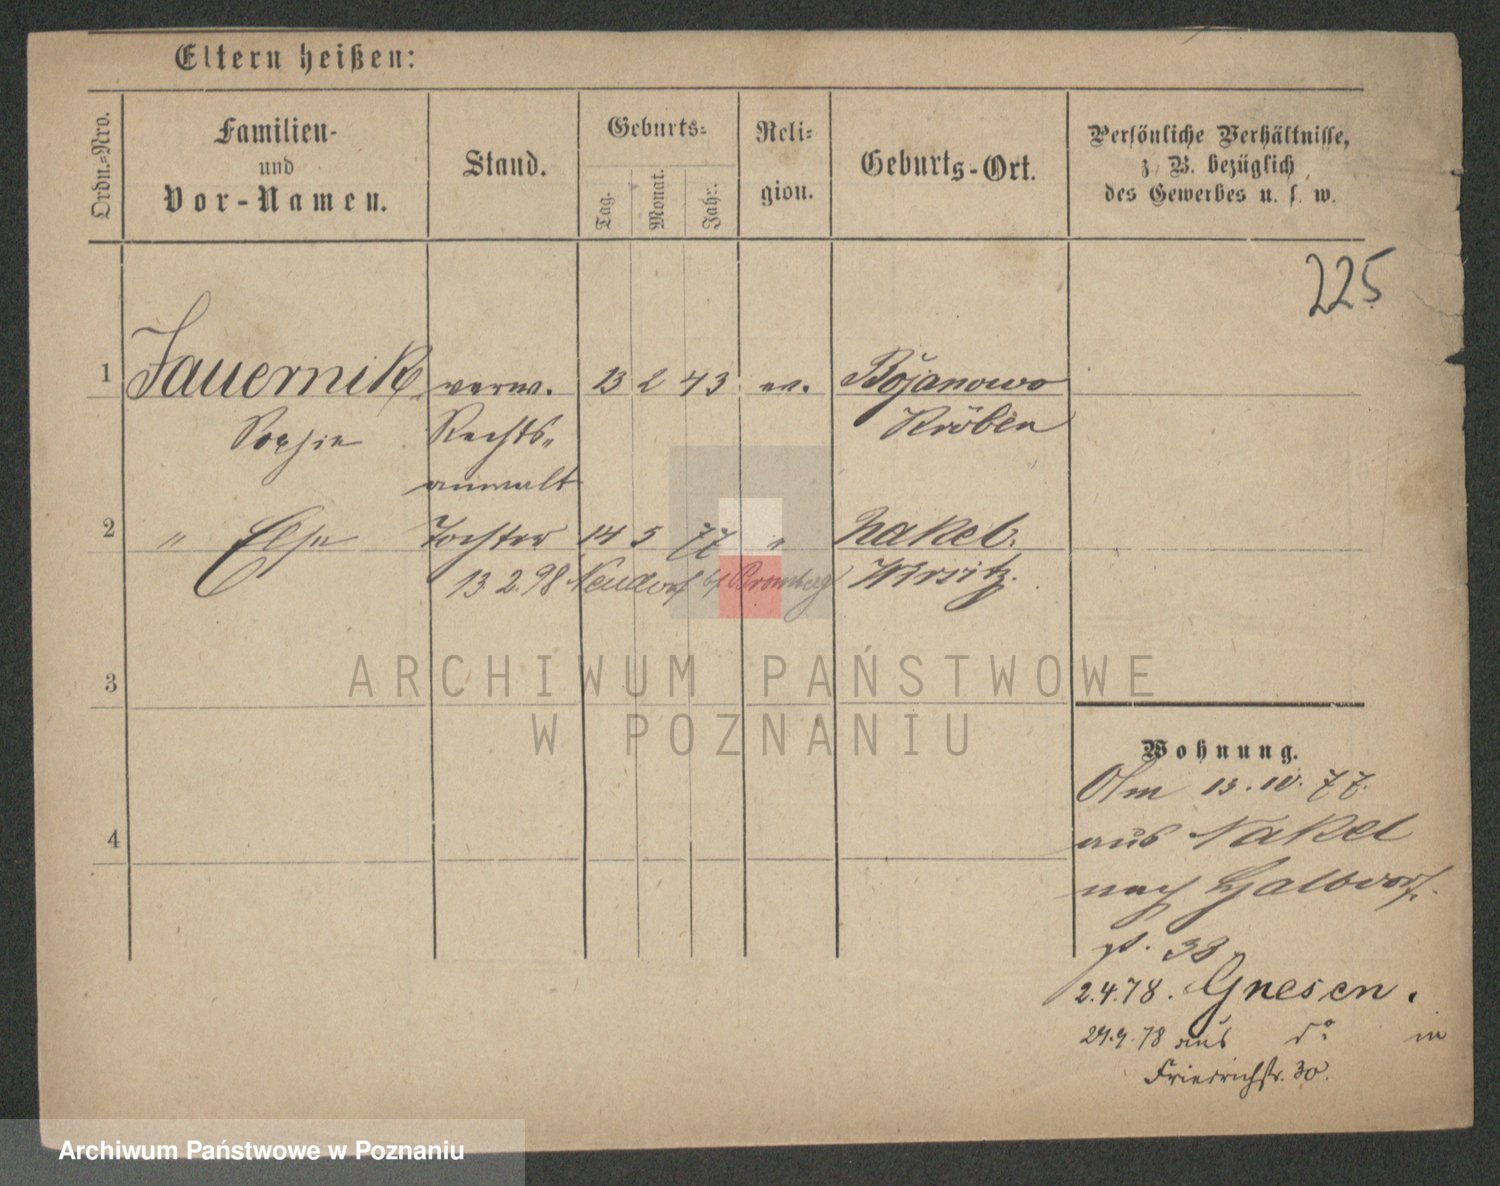 Eltern heißen:
Ordn.=Nro.
Familien-
und
Vor-Namen.
Stand.
Geburts=
Tag.
Monat.
Jahr.
Reli=
gion.
Geburts-Ort.
Persönliche Verhältnisse,
z. B. bezüglich
des Gewerbes u. s. w.
225
1 Jauernik verw. 13 2 43 ev. Bojanowo
Sophie Rechts- Kröben
anwalt
2 " Else Tochter 14 5 77 " Nakel.
13 2. 98 Neudorf b/ Bromberg Wirsitz.
ARCHIWUM PAŃSTWOWE
3
W POZNANIU
Wohnung.
13. 10. 77.
4
aus Nakel
nach Halbdorf-
st. 38
2.4.78. Gnesen.
29.9.78 aus do in
Friedrichstr. 30.
Archiwum Państwowe w Poznaniu